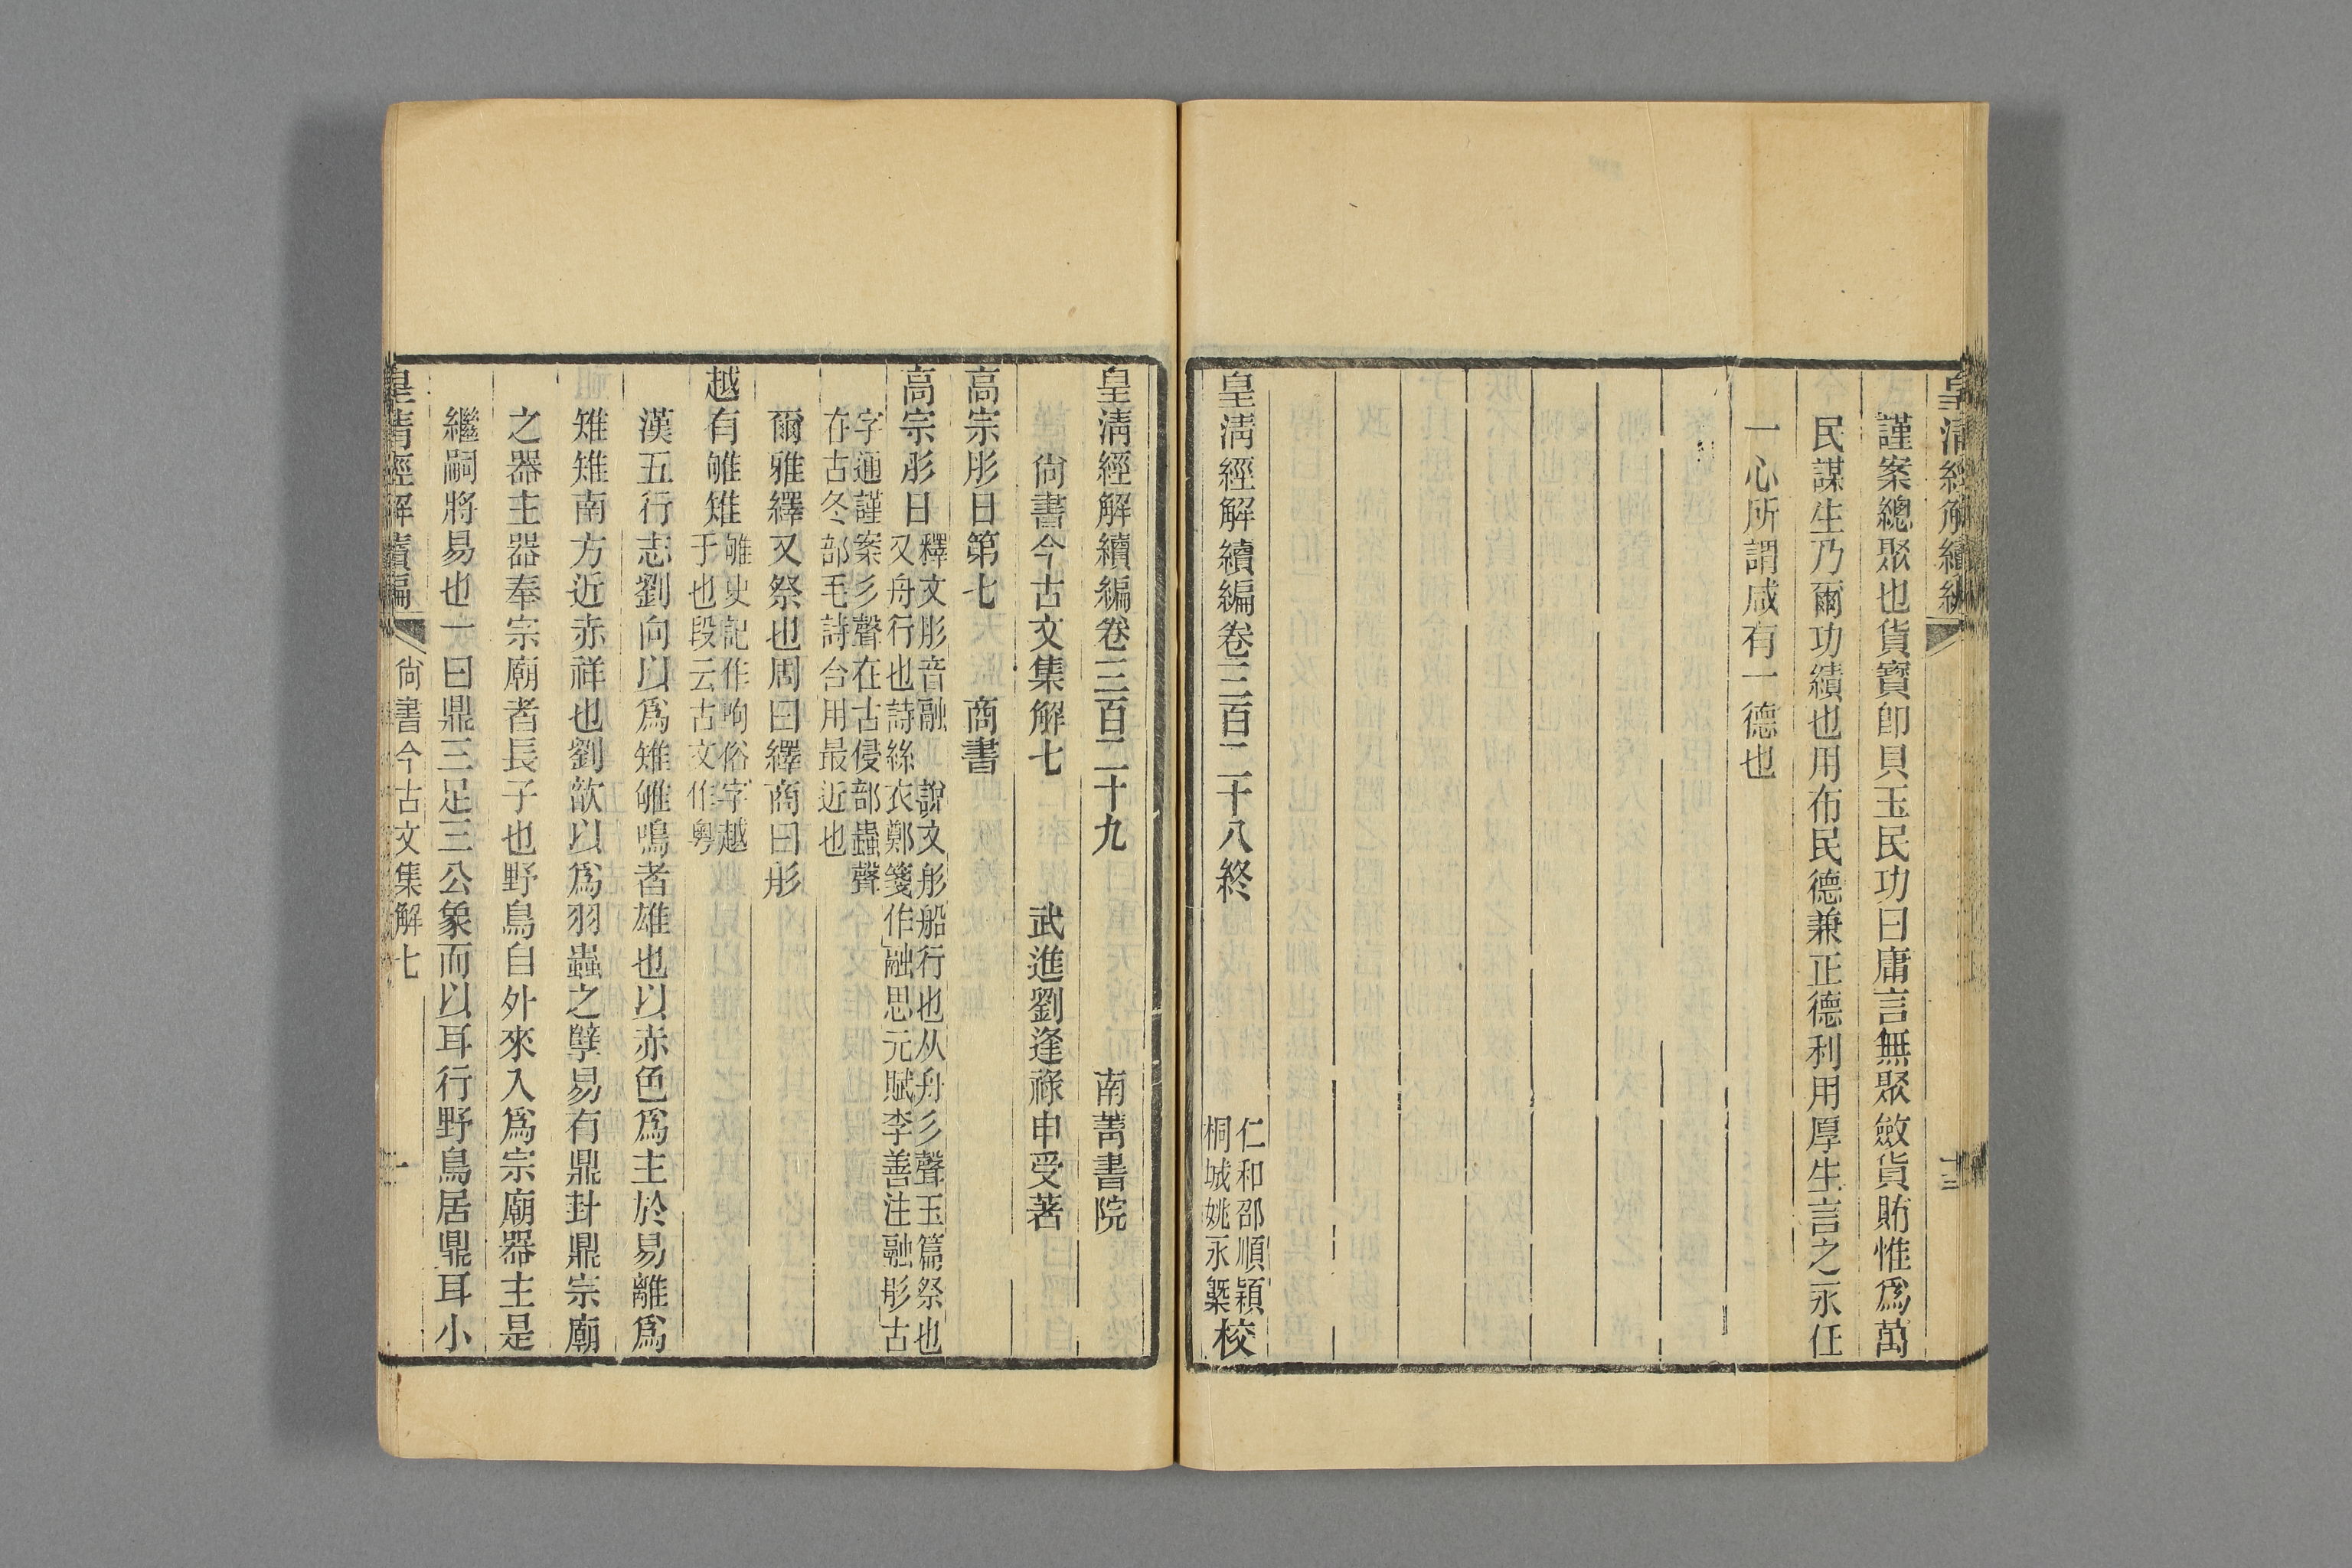 謹案總聚也貨寶卽貝玉民功曰庸言無聚斂貨賄惟爲萬
民謀生乃爾功績也用布民德兼正德利用厚生言之永任
一心所謂咸有一德也
皇淸經解續編卷三百二十八終
仁和邵順穎
桐城姚永槩
校
皇淸經解續編卷三百二十九
南菁書院
尙書今古文集解七
武進劉逢祿申受著
高宗肜日第七
商書
高宗肜日
釋文肜音融
說文肜船行也从舟彡聲玉篇祭也
又舟行也詩絲衣鄭箋作融思元賦李善注融肜古
字通謹案彡聲在古侵部蟲聲
在古冬部毛詩合用最近也
爾雅繹又祭也周曰繹商曰肜
越有雊雉
雊史記作呴俗字越
于也段云古文作粤
漢五行志劉向以爲雉雊鳴者雄也以赤色爲主於易離爲
雉雉南方近赤祥也劉歆以爲羽蟲之孽易有鼎卦鼎宗廟
之器主器奉宗廟者長子也野鳥自外來入爲宗廟器主是
繼嗣將易也一曰鼎三足三公象而以耳行野鳥居鼎耳小
皇淸經解續編
尙書今古文集解七
一